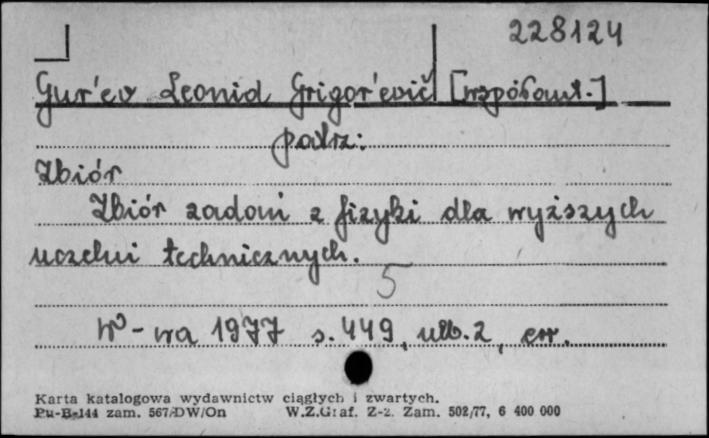 228124
Gur'ev Leonid Grigor'evič [współaut.]
patrz:
Zbiór
Zbiór zadań z fizyki dla wyższych
uczelni technicznych.
5
W-wa 1977 s. 449, nlb. 2, err.
Karta katalogowa wydawnictw ciągłych i zwartych.
Pu-B-144 zam. 567/DW/On W.Z.Graf. Z-2. Zam. 502/77, 6 400 000